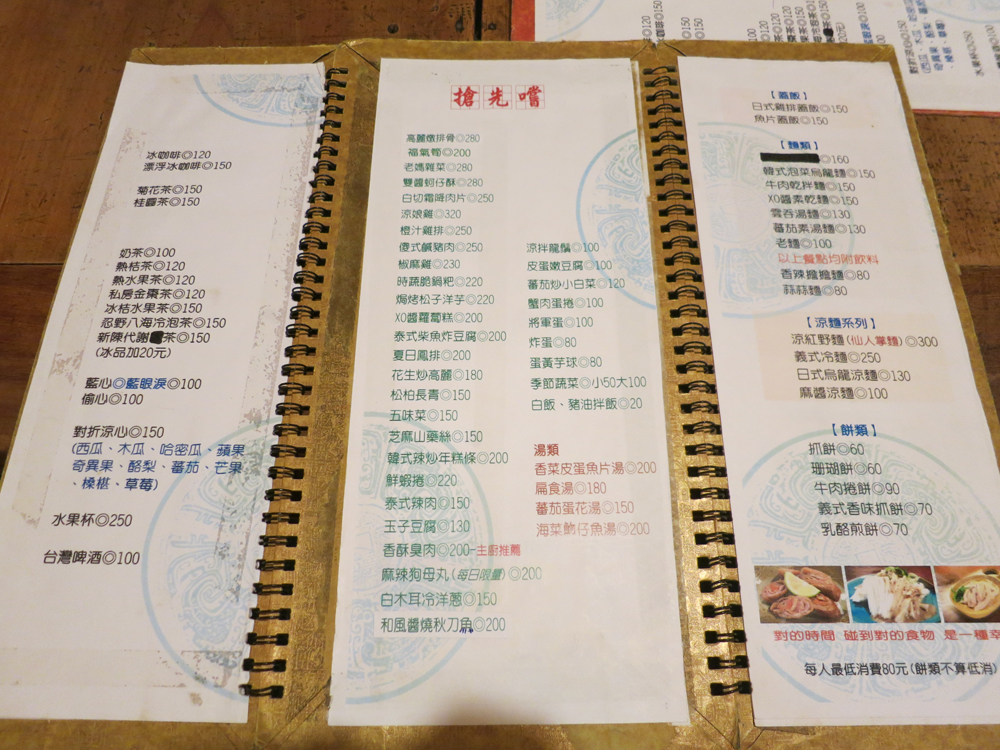 冰咖啡◎120
漂浮冰咖啡◎150
菊花茶◎150
桂圓茶◎150
奶茶◎100
熱桔茶◎120
熱水果茶◎120
私房金棗茶◎120
冰桔水果茶◎150
忍野八海冷泡茶◎150
新陳代謝茶◎150
(冰品加20元)
藍心◎藍眼淚◎100
偷心◎100
對折涼心◎150
(西瓜、木瓜、哈密瓜、蘋果
奇異果、酪梨、蕃茄、芒果
、桑椹、草莓)
水果杯◎250
台灣啤酒◎100
搶先嚐
高麗燉排骨◎280
福氣筍◎200
老媽雜菜◎280
雙醬蚵仔酥◎280
白切霜降肉片◎250
涼娘雞◎320
橙汁雞排◎250
傻式鹹豬肉◎250
椒麻雞◎230
時蔬脆鍋粑◎220
焗烤松子洋芋◎220
XO醬蘿蔔糕◎200
泰式柴魚炸豆腐◎200
夏日鳳排◎200
花生炒高麗◎180
松柏長青◎150
五味菜◎150
芝麻山藥絲◎150
韓式辣炒年糕條◎200
鮮蝦捲◎220
泰式辣肉◎150
玉子豆腐◎130
香酥臭肉◎200-主廚推薦
麻辣狗母丸(每日限量)◎200
白木耳冷洋蔥◎150
和風醬燒秋刀魚◎200
涼拌龍鬚◎100
皮蛋嫩豆腐◎100
蕃茄炒小白菜◎120
蟹肉蛋捲◎100
將軍蛋◎100
炸蛋◎80
蛋黃芋球◎80
季節蔬菜◎小50大100
白飯、豬油拌飯◎20
湯類
香菜皮蛋魚片湯◎200
扁食湯◎180
蕃茄蛋花湯◎150
海菜魩仔魚湯◎200
【蓋飯】
日式雞排蓋飯◎150
魚片蓋飯◎150
【麵類】
◎160
韓式泡菜烏龍麵◎150
牛肉乾拌麵◎150
XO醬素乾麵◎150
雲吞湯麵◎130
蕃茄素湯麵◎130
老麵◎100
以上餐點均附飲料
香辣擔擔麵◎80
蒜蒜麵◎80
【涼麵系列】
涼紅野麵(仙人掌麵)◎300
義式冷麵◎250
日式烏龍涼麵◎130
麻醬涼麵◎100
【餅類】
抓餅◎60
珊瑚餅◎60
牛肉捲餅◎90
義式香味抓餅◎70
乳酪煎餅◎70
對的時間 碰到對的食物 是一種幸
每人最低消費80元(餅類不算低消)